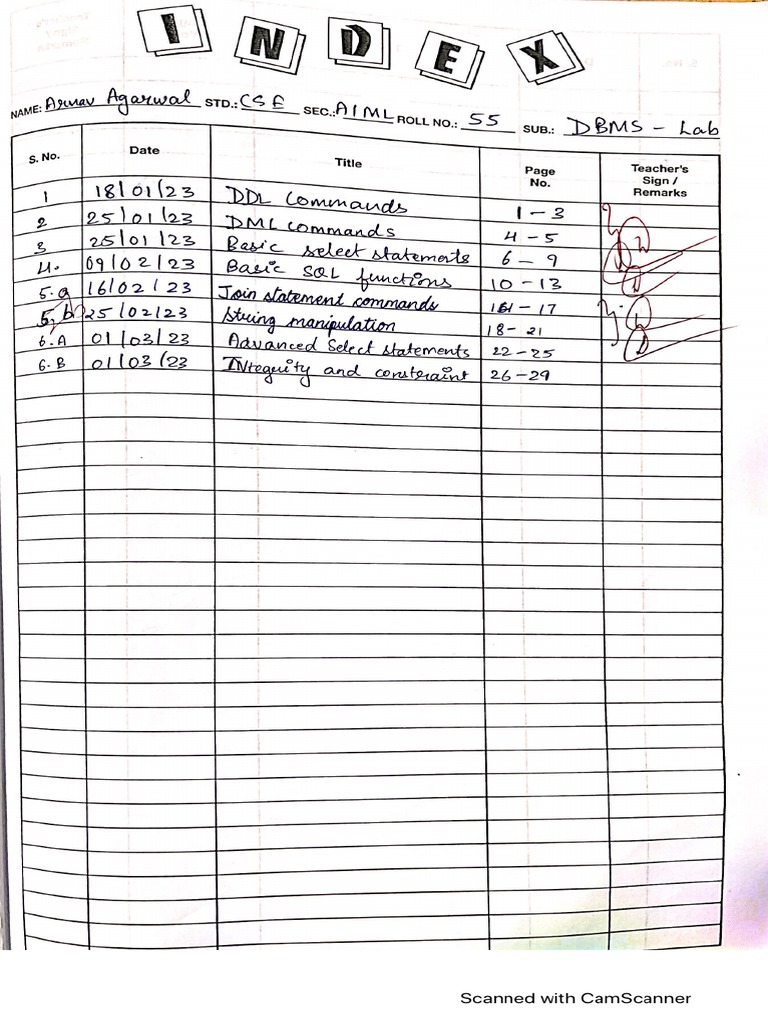 INDEX
NAME: Arnav Agarwal STD.: CSE SEC.: AIML ROLL NO.: 55 SUB.: DBMS - Lab
S. No. Date Title Page No. Teacher's Sign / Remarks
1 18/01/23 DDL Commands 1 - 3
2 25/01/23 DML commands 4 - 5
3 25/01/23 Basic select statements 6 - 9
4. 09/02/23 Basic SQL functions 10 - 13
5. a 16/02/23 Join statement commands 14 - 17
5. b 25/02/23 String manipulation 18 - 21
6. A 01/03/23 Advanced Select statements 22 - 25
6. B 01/03/23 INtegrity and constraint 26 - 29
Scanned with CamScanner